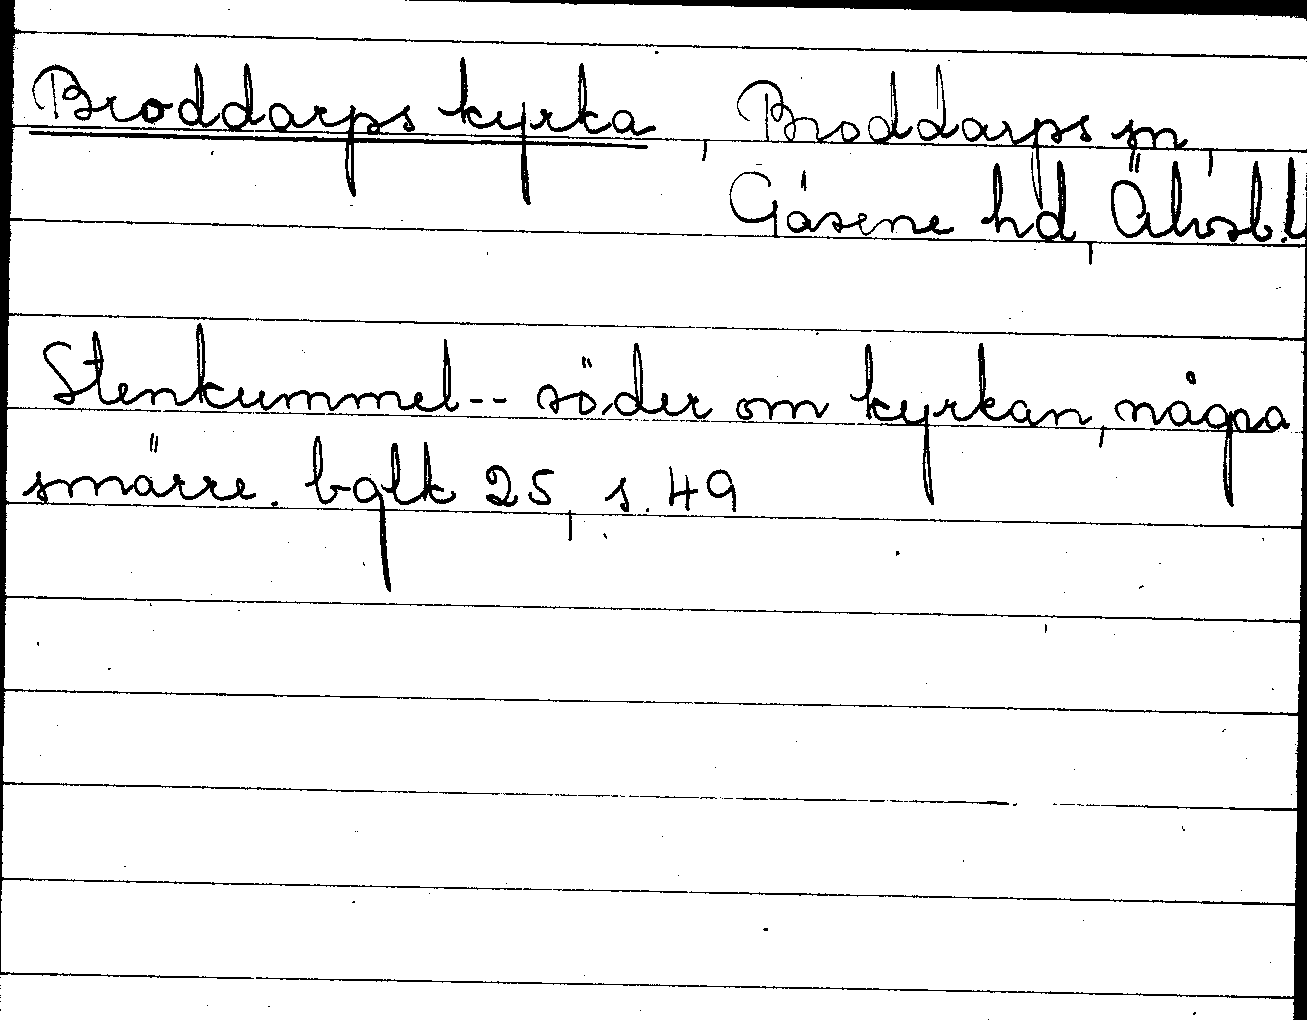 Broddarps kyrka, Broddarps sn,
Gäsene hd, Älvsb.l
Stenkummel-- söder om kyrkan, några
smärre. bglk 25, s. 49